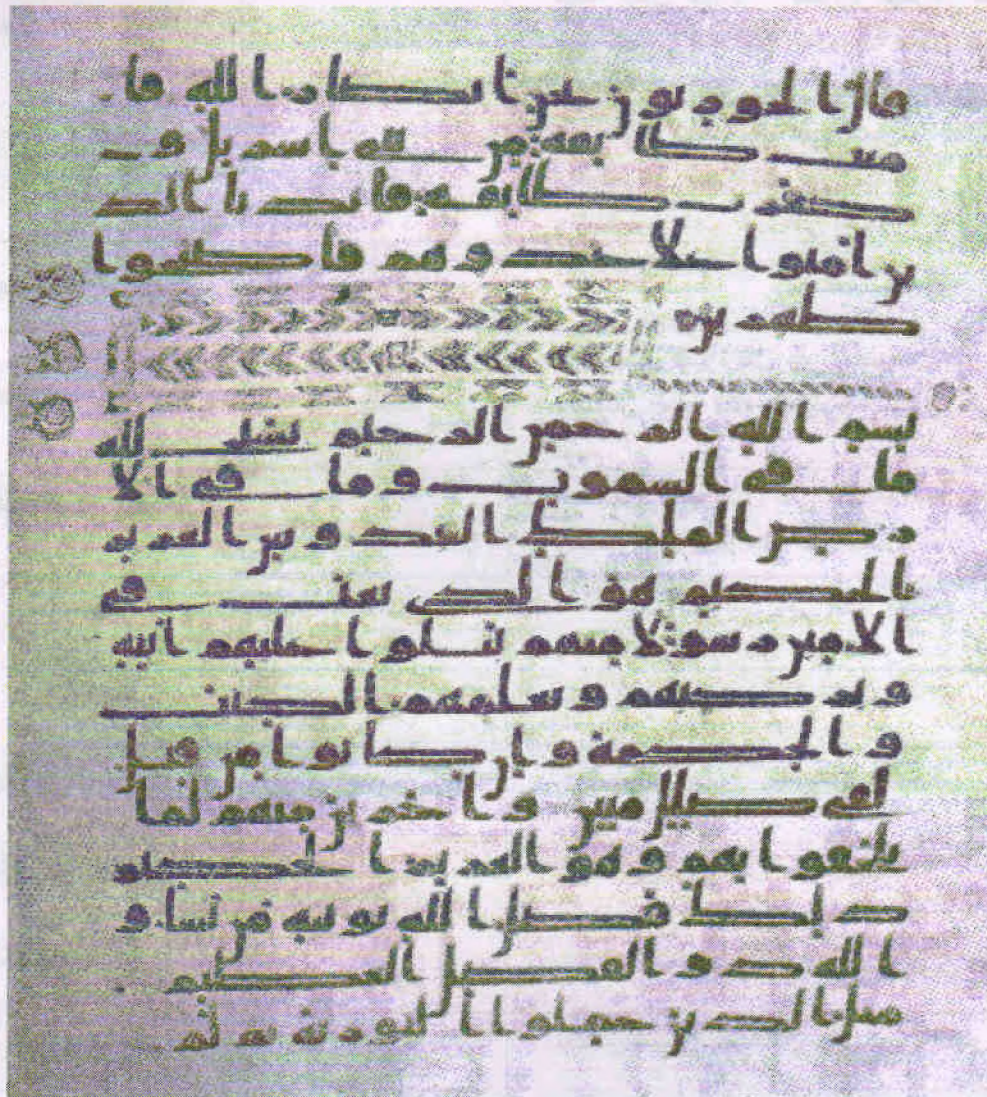 قال الحوريون نحن انصار الله فا
منت طائفة من بني اسريل و
كفرت طائفة فايدنا الذ
ين امنوا على عدوهم فاصبحوا
ظهرين
بسم الله الرحمن الرحيم يسبح لله
ما في السموت وما في الا
رض الملك القدوس العزيز
الحكيم هو الذي بعث في
الامين رسولا منهم يتلوا عليهم ايته
ويزكيهم ويعلمهم الكتب
والحكمة وان كانوا من قبل
لفي ضلل مبين واخرين منهم لما
يلحقوا بهم وهو العزيز الحكيم
ذلك فضل الله يوتيه من يشا و
الله ذو الفضل العظيم
مثل الذين حملوا التورية ثم لم